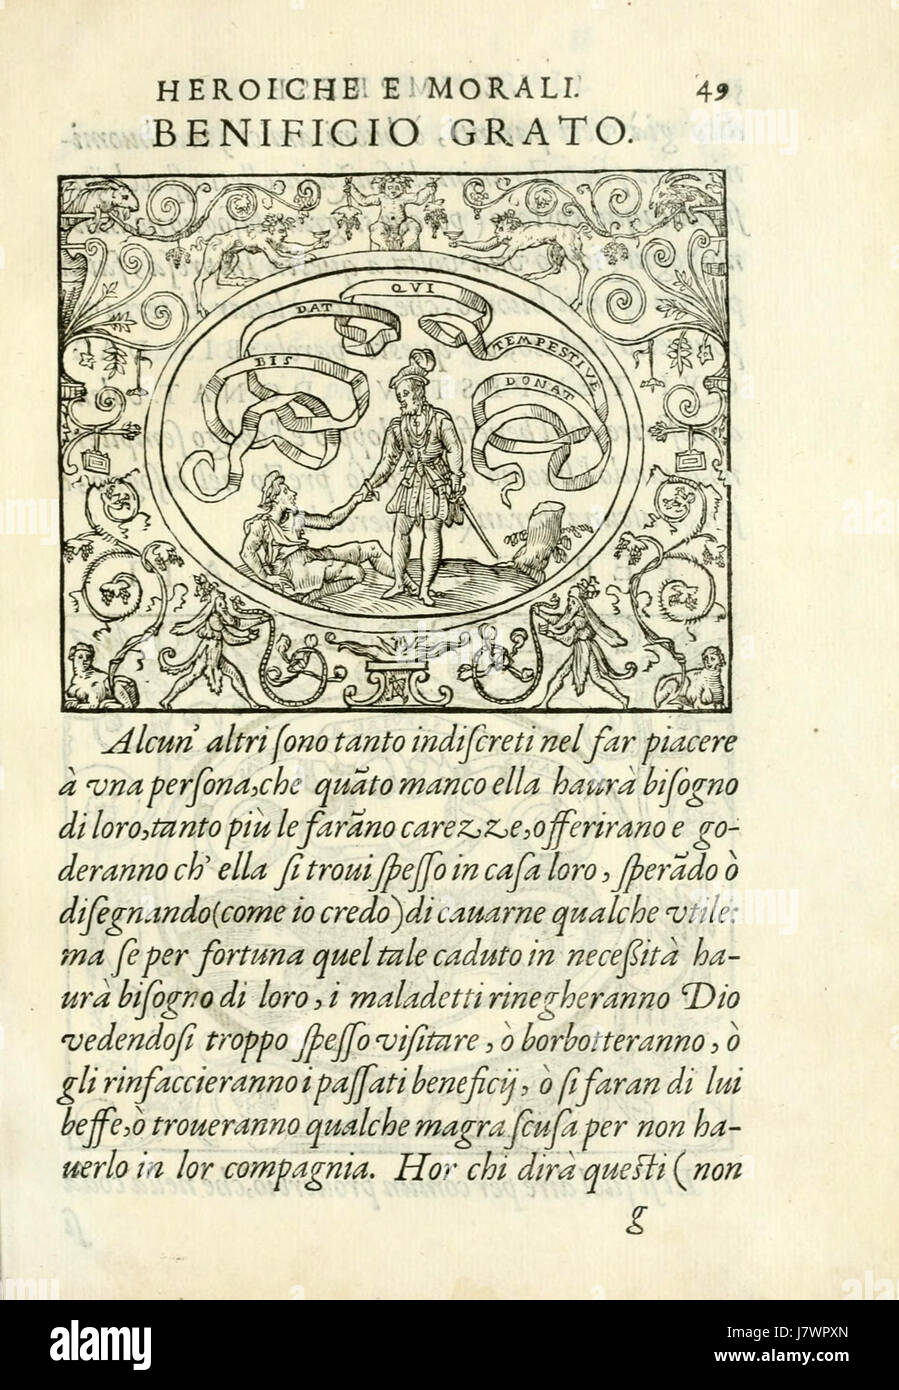 HEROICHE E MORALI. 49
BENIFICIO GRATO.
BIS
DAT
QVI
TEMPESTIVE
DONAT
Alcun' altri ſono tanto indiſcreti nel far piacere
à vna perſona, che quãto manco ella haurà biſogno
di loro, tanto più le farãno carezze, offerirano e go-
deranno ch' ella ſi troui ſpeſſo in caſa loro, ſperãdo ò
diſegnando (come io credo) di cauarne qualche vtile:
ma ſe per fortuna quel tale caduto in neceßità ha-
urà biſogno di loro, i maladetti rinegheranno Dio
vedendoſi troppo ſpeſſo viſitare, ò borbotteranno, ò
gli rinfaccieranno i paſſati beneficij, ò ſi faran di lui
beffe, ò troueranno qualche magra ſcuſa per non ha-
uerlo in lor compagnia. Hor chi dirà queſti (non
g
alamy
Image ID: J7WPXN
www.alamy.com